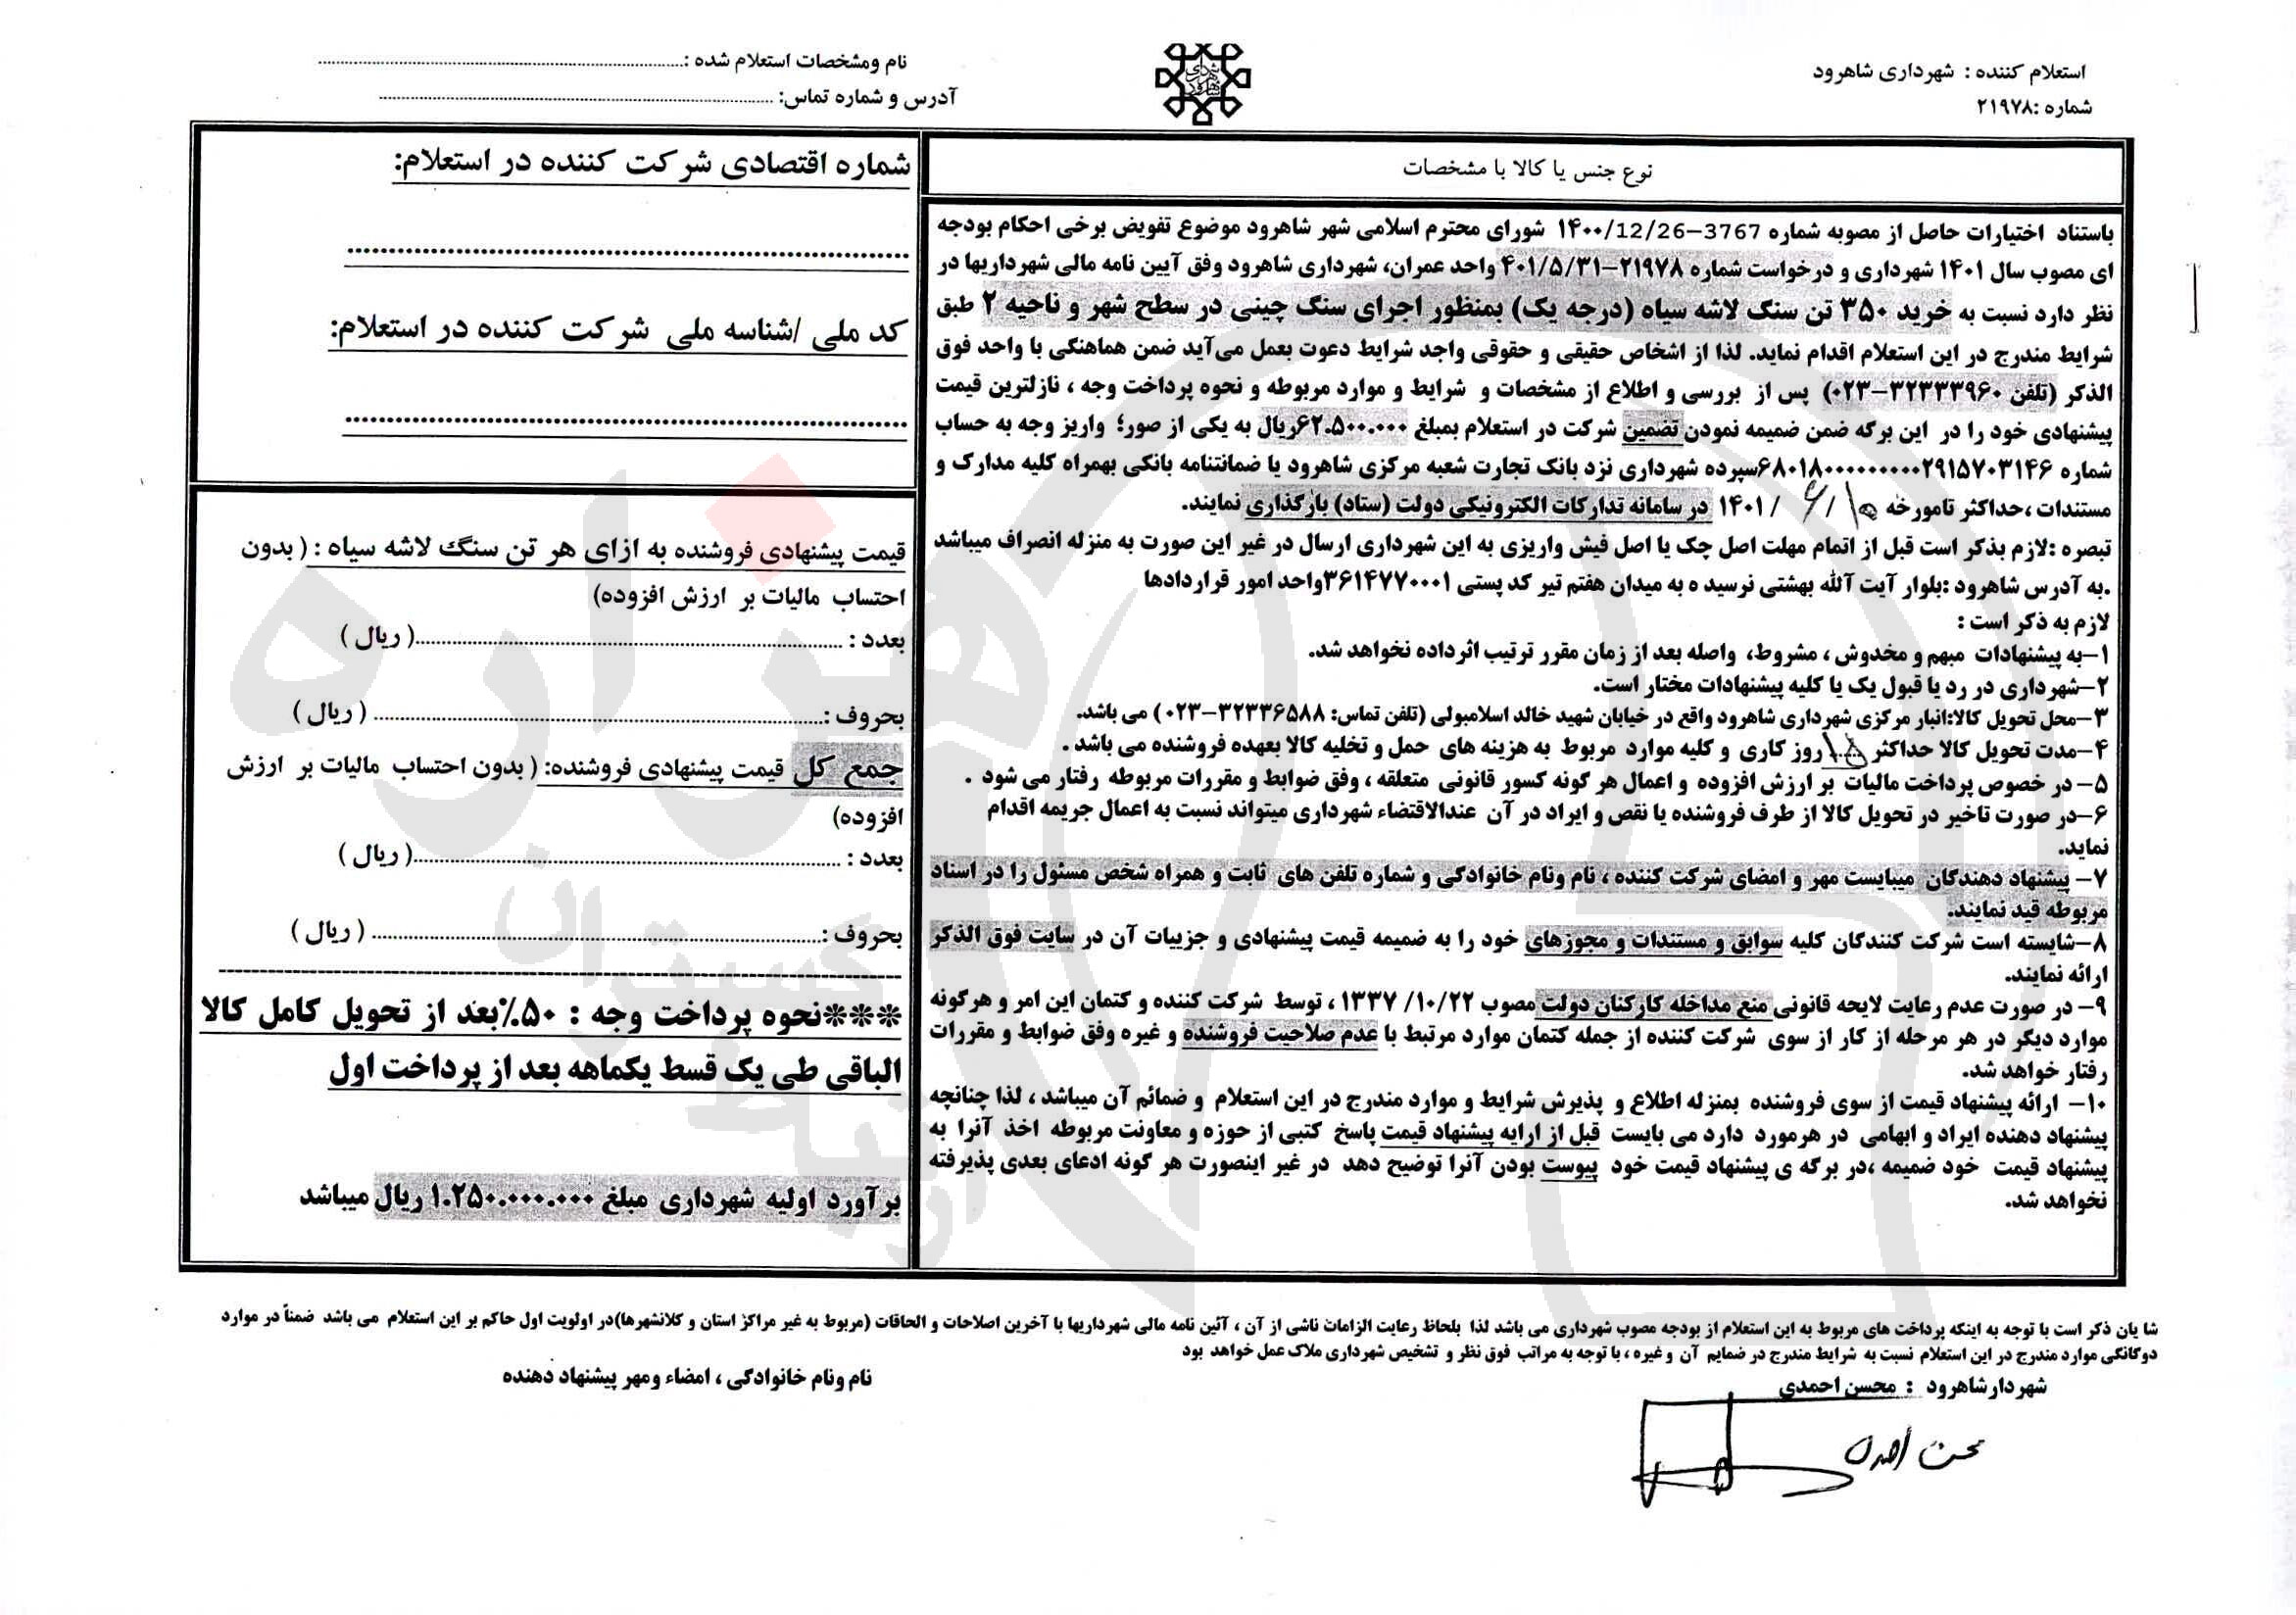 استعلام کننده : شهرداری شاهرود
شماره :۲۱۹۷۸
نام ومشخصات استعلام شده :
آدرس و شماره تماس:
نوع جنس یا کالا با مشخصات
باستناد اختیارات حاصل از مصوبه شماره 3767-۱۴۰۰/12/26 شورای محترم اسلامی شهر شاهرود موضوع تفویض برخی احکام بودجه
ای مصوب سال ۱۴۰۱ شهرداری و درخواست شماره ۲۱۹۷۸-۴۰۱/۵/۳۱ واحد عمران، شهرداری شاهرود وفق آیین نامه مالی شهرداریها در
نظر دارد نسبت به خرید ۳۵۰ تن سنگ لاشه سیاه (درجه یک) بمنظور اجرای سنگ چینی در سطح شهر و ناحیه ۲ طبق
شرایط مندرج در این استعلام اقدام نماید. لذا از اشخاص حقیقی و حقوقی واجد شرایط دعوت بعمل می‌آید ضمن هماهنگی با واحد فوق
الذکر (تلفن ۳۲۳۳۳۹۶۰-۰۲۳) پس از بررسی و اطلاع از مشخصات و شرایط و موارد مربوطه و نحوه پرداخت وجه ، نازلترین قیمت
پیشنهادی خود را در این برگه ضمن ضمیمه نمودن تضمین شرکت در استعلام بمبلغ ۶۲.۵۰۰.۰۰۰ریال به یکی از صور؛ واریز وجه به حساب
شماره ۶۸۰۱۸۰۰۰۰۰۰۰۰۰۰۲۹۱۵۷۰۳۱۴۶سپرده شهرداری نزد بانک تجارت شعبه مرکزی شاهرود یا ضمانتنامه بانکی بهمراه کلیه مدارک و
مستندات ،حداکثر تامورخه ۱۴۰۱/۶/۱۵ در سامانه تدارکات الکترونیکی دولت (ستاد) بارگذاری نمایند.
تبصره :لازم بذکر است قبل از اتمام مهلت اصل چک یا اصل فیش واریزی به این شهرداری ارسال در غیر این صورت به منزله انصراف میباشد
.به آدرس شاهرود :بلوار آیت آلله بهشتی نرسید ه به میدان هفتم تیر کد پستی ۳۶۱۴۷۷۰۰۰۱واحد امور قراردادها
لازم به ذکر است :
۱-به پیشنهادات مبهم و مخدوش ، مشروط، واصله بعد از زمان مقرر ترتیب اثرداده نخواهد شد.
۲-شهرداری در رد یا قبول یک یا کلیه پیشنهادات مختار است.
۳-محل تحویل کالا:انبار مرکزی شهرداری شاهرود واقع در خیابان شهید خالد اسلامبولی (تلفن تماس: ۳۲۳۳۶۵۸۸-۰۲۳) می باشد.
۴-مدت تحویل کالا حداکثر روز کاری و کلیه موارد مربوط به هزینه های حمل و تخلیه کالا بعهده فروشنده می باشد .
۵- در خصوص پرداخت مالیات بر ارزش افزوده و اعمال هر گونه کسور قانونی متعلقه ، وفق ضوابط و مقررات مربوطه رفتار می شود .
۶-در صورت تاخیر در تحویل کالا از طرف فروشنده یا نقص و ایراد در آن عندالاقتضاء شهرداری میتواند نسبت به اعمال جریمه اقدام
نماید.
۷- پیشنهاد دهندگان میبایست مهر و امضای شرکت کننده ، نام ونام خانوادگی و شماره تلفن های ثابت و همراه شخص مسئول را در اسناد
مربوطه قید نمایند.
۸-شایسته است شرکت کنندگان کلیه سوابق و مستندات و مجوزهای خود را به ضمیمه قیمت پیشنهادی و جزییات آن در سایت فوق الذکر
ارائه نمایند.
۹- در صورت عدم رعایت لایحه قانونی منع مداخله کارکنان دولت مصوب ۱۰/۲۲/ ۱۳۳۷ ، توسط شرکت کننده و کتمان این امر و هرگونه
موارد دیگر در هر مرحله از کار از سوی شرکت کننده از جمله کتمان موارد مرتبط با عدم صلاحیت فروشنده و غیره وفق ضوابط و مقررات
رفتار خواهد شد.
۱۰- ارائه پیشنهاد قیمت از سوی فروشنده بمنزله اطلاع و پذیرش شرایط و موارد مندرج در این استعلام و ضمائم آن میباشد ، لذا چنانچه
پیشنهاد دهنده ایراد و ابهامی در هرمورد دارد می بایست قبل از ارایه پیشنهاد قیمت پاسخ کتبی از حوزه و معاونت مربوطه اخذ آنرا به
پیشنهاد قیمت خود ضمیمه ،در برگه ی پیشنهاد قیمت خود پیوست بودن آنرا توضیح دهد در غیر اینصورت هر گونه ادعای بعدی پذیرفته
نخواهد شد.
شماره اقتصادی شرکت کننده در استعلام:
کد ملی /شناسه ملی شرکت کننده در استعلام:
قیمت پیشنهادی فروشنده به ازای هر تن سنگ لاشه سیاه : ( بدون
احتساب مالیات بر ارزش افزوده)
بعدد : ( ریال )
بحروف : ( ریال )
جمع کل قیمت پیشنهادی فروشنده: ( بدون احتساب مالیات بر ارزش
افزوده)
بعدد : ( ریال )
بحروف : ( ریال )
***نحوه پرداخت وجه : ۵۰٪بعد از تحویل کامل کالا
الباقی طی یک قسط یکماهه بعد از پرداخت اول
برآورد اولیه شهرداری مبلغ ۱.۲۵۰.۰۰۰.۰۰۰ ریال میباشد
شا یان ذکر است با توجه به اینکه پرداخت های مربوط به این استعلام از بودجه مصوب شهرداری می باشد لذا بلحاظ رعایت الزامات ناشی از آن ، آئین نامه مالی شهرداریها با آخرین اصلاحات و الحاقات (مربوط به غیر مراکز استان و کلانشهرها)در اولویت اول حاکم بر این استعلام می باشد ضمناً در موارد
دوگانگی موارد مندرج در این استعلام نسبت به شرایط مندرج در ضمایم آن و غیره ، با توجه به مراتب فوق نظر و تشخیص شهرداری ملاک عمل خواهد بود
شهردارشاهرود : محسن احمدی
نام ونام خانوادگی ، امضاء ومهر پیشنهاد دهنده
محسن احمدی